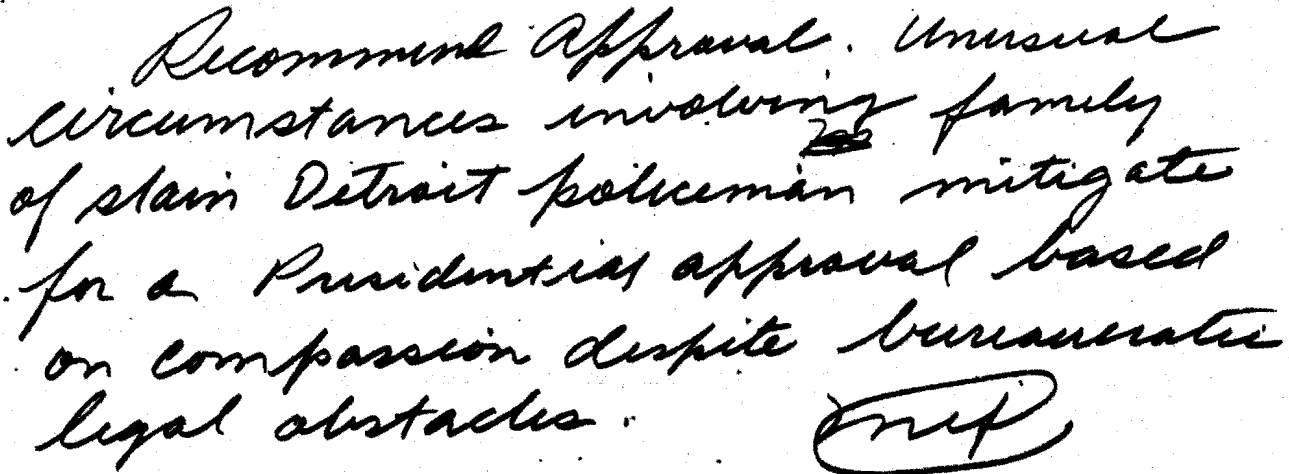 Recommend Approval. Unusual
circumstances involving family
of slain Detroit policeman mitigate
for a Presidential approval based
on compassion despite bureaucratic
legal obstacles.